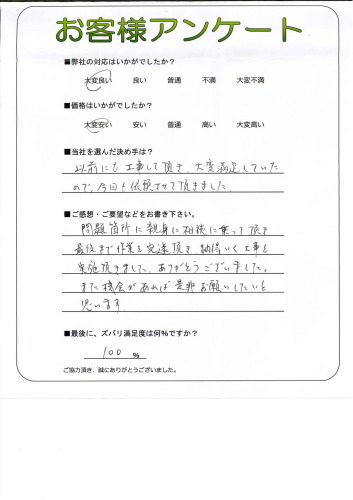 お客様アンケート
■弊社の対応はいかがでしたか？
大変良い 良い 普通 不満 大変不満
■価格はいかがでしたか？
大変安い 安い 普通 高い 大変高い
■当社を選んだ決め手は？
以前にも工事して頂き、大変満足していた
ので、今回も依頼させて頂きました
■ご感想・ご要望などをお書き下さい。
問題箇所に親身に相談に乗って頂き
最後まで作業を完遂頂き 納得いく工事を
実施頂きました、ありがとうございました。
また機会があれば是非お願いしたいと
思います
■最後に、ズバリ満足度は何%ですか？
100 %
ご協力頂き、誠にありがとうございました。